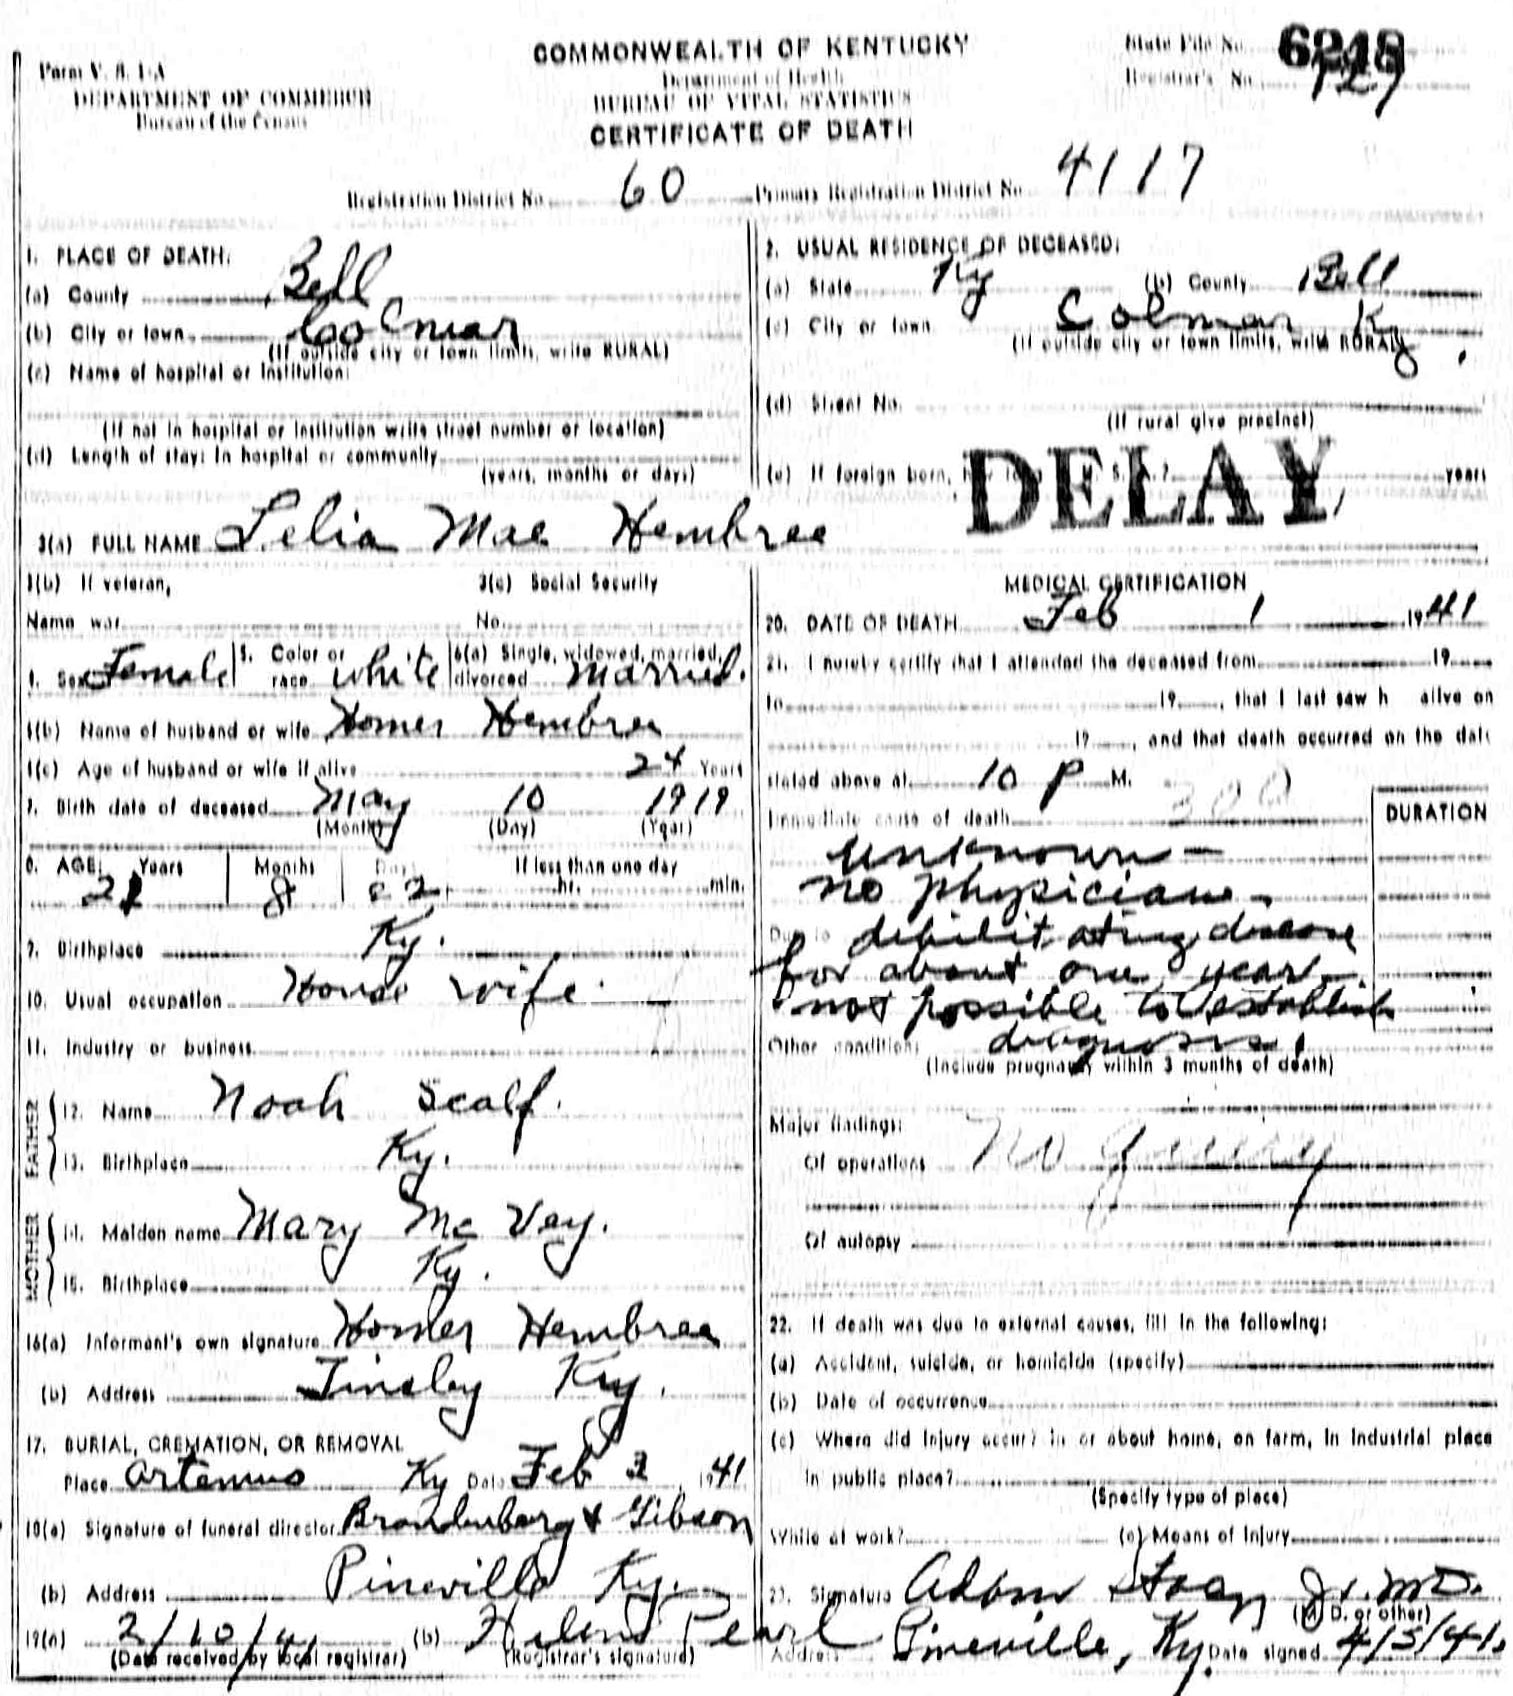 Form V. S. 1-A
DEPARTMENT OF COMMERCE
Bureau of the Census
COMMONWEALTH OF KENTUCKY
Department of Health
BUREAU OF VITAL STATISTICS
CERTIFICATE OF DEATH
State File No. 6248
Registrar's No. 127
Registration District No. 60 Primary Registration District No. 4117
1. PLACE OF DEATH:
(a) County Bell
(b) City or town Colmar
(If outside city or town limits, write RURAL)
(c) Name of hospital or institution:
(If not in hospital or institution write street number or location)
(d) Length of stay: In hospital or community
(years, months or days)
2. USUAL RESIDENCE OF DECEASED:
(a) State Ky (b) County Bell
(c) City or town Colmar Ky.
(If outside city or town limits, write RURAL)
(d) Street No.
(If rural give precinct)
(e) If foreign born, years
DELAY
3(a) FULL NAME Lelia Mae Hembree
3(b) If veteran, 3(c) Social Security
Name war No.
4. Sex Female 5. Color or race white 6(a) Single, widowed, married, divorced Married.
6(b) Name of husband or wife Homer Hembree
6(c) Age of husband or wife if alive 24 Years
7. Birth date of deceased May 10 1919
(Month) (Day) (Year)
8. AGE: Years Months Days If less than one day
21 8 22 hr. min.
9. Birthplace Ky.
10. Usual occupation House wife
11. Industry or business
FATHER
12. Name Noah Scalf.
13. Birthplace Ky.
MOTHER
14. Maiden name Mary Mc Vey.
15. Birthplace Ky.
16(a) Informant's own signature Homer Hembree
(b) Address Tinsley Ky.
17. BURIAL, CREMATION, OR REMOVAL
Place Artemus Ky Date Feb 3, 1941
18(a) Signature of funeral director Brandenburg & Gibson
(b) Address Pineville Ky.
19(a) 2/10/41 (b) Helene Pearl
(Date received by local registrar) (Registrar's signature)
MEDICAL CERTIFICATION
20. DATE OF DEATH Feb 1 1941
21. I hereby certify that I attended the deceased from 19
to 19, that I last saw h alive on
19, and that death occurred on the date
stated above at 10 P M.
Immediate cause of death 200
DURATION
unknown -
no physician -
Due to debilitating disease
for about one year -
not possible to establish
Other conditions diagnosis.
(Include pregnancy within 3 months of death)
Major findings:
Of operations
Of autopsy
22. If death was due to external causes, fill in the following:
(a) Accident, suicide, or homicide (specify)
(b) Date of occurrence
(c) Where did injury occur? In or about home, on farm, in industrial place
in public place?
(Specify type of place)
While at work? (e) Means of injury
23. Signature Adam Stacy Jr. MD.
(M. D. or other)
Address Pineville, Ky. Date signed 4/5/41.